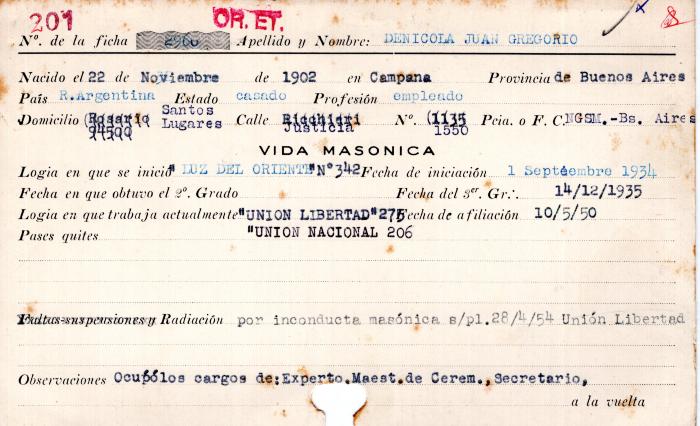 201 OR. ET.
Nº. de la ficha 2960 Apellido y Nombre: DENICOLA JUAN GREGORIO
Nacido el 22 de Noviembre de 1902 en Campana Provincia de Buenos Aires
País R.Argentina Estado casado Profesión empleado
Santos
Domicilio (Rosario Lugares Calle Ricchieri Nº. (1135 Pcia. o F. C. NGSM.-Bs. Aires
Justicia 1550
VIDA MASONICA
Logia en que se inició "LUZ DEL ORIENTE" Nº342 Fecha de iniciación 1 Septiembre 1934
Fecha en que obtuvo el 2º. Grado Fecha del 3er Gr∴. 14/12/1935
Logia en que trabaja actualmente "UNION LIBERTAD" 275 Fecha de afiliación 10/5/50
Pases quites "UNION NACIONAL 206
Faltas-suspensiones y Radiación por inconducta masónica s/pl.28/4/54 Unión Libertad
Observaciones Ocupólos cargos de:Experto.Maest.de Cerem.,Secretario,
a la vuelta